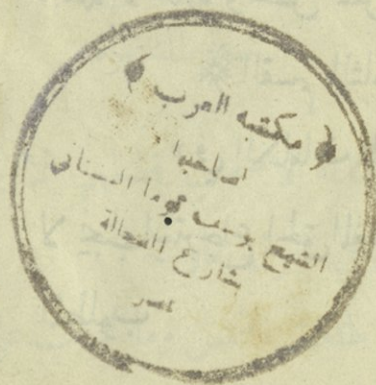 ﴿ مكتبة العرب ﴾
لصاحبها
الشيخ يوسف توما البستاني
شارع الفجالة
بمصر